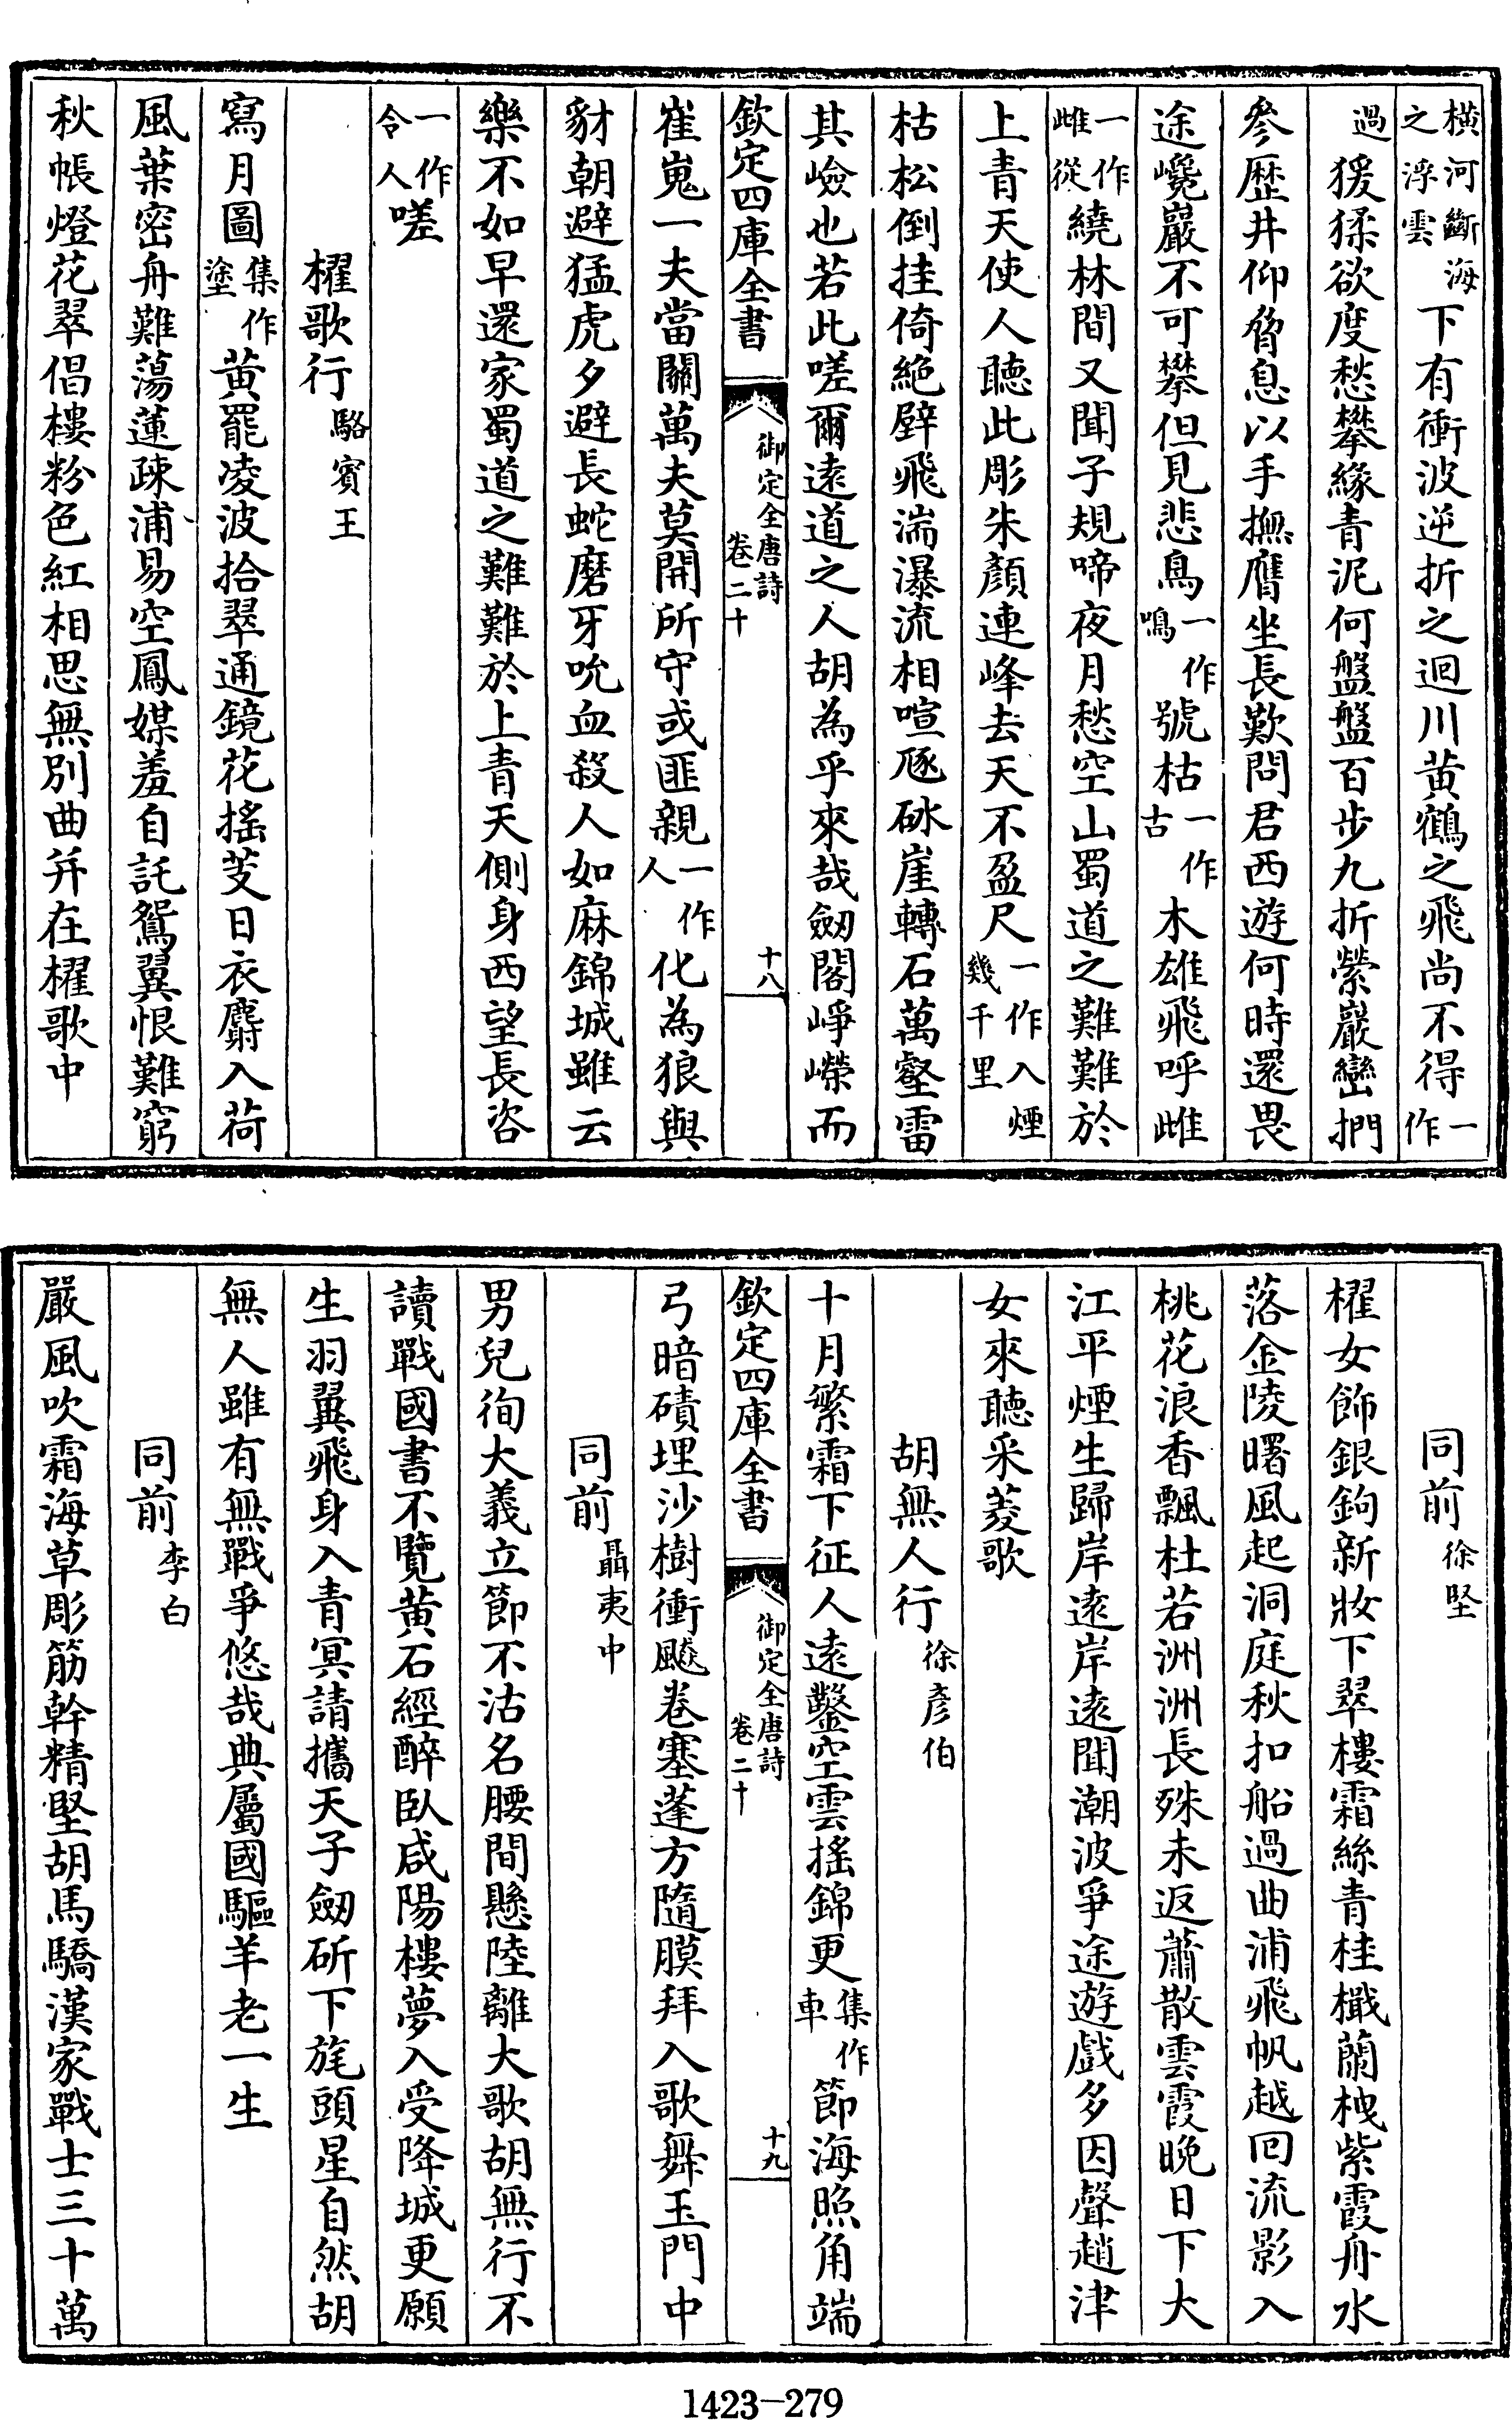 橫河斷海之浮雲下有衝波逆折之迴川黄鶴之飛尚不得一作
過猨猱欲度愁攀緣青泥何盤盤百步九折縈巖巒捫
參歷井仰脅息以手撫膺坐長歎問君西遊何時還畏
途巉巖不可攀但見悲鳥一作鳴號枯一作古木雄飛呼雌
一作雌從繞林間又聞子規啼夜月愁空山蜀道之難難於
上青天使人聽此彫朱顏連峰去天不盈尺一作入煙幾千里
枯松倒挂倚絶壁飛湍瀑流相喧豗砯崖轉石萬壑雷
其嶮也若此嗟爾遠道之人胡為乎來哉劒閣崢嶸而
欽定四庫全書 御定全唐詩 卷二十 十八
崔嵬一夫當關萬夫莫開所守或匪親一作人化為狼與
豺朝避猛虎夕避長蛇磨牙吮血殺人如麻錦城雖云
樂不如早還家蜀道之難難於上青天側身西望長咨
一作令人嗟
櫂歌行 駱賓王
寫月圖集作塗黄罷凌波拾翠通鏡花搖芰日衣麝入荷
風葉密舟難蕩蓮疎浦易空鳳媒羞自託鴛翼恨難窮
秋帳燈花翠倡樓粉色紅相思無別曲并在櫂歌中
同前 徐堅
櫂女飾銀鉤新妝下翠樓霜絲青桂檝蘭栧紫霞舟水
落金陵曙風起洞庭秋扣船過曲浦飛帆越回流影入
桃花浪香飄杜若洲洲長殊未返蕭散雲霞晚日下大
江平煙生歸岸遠岸遠聞潮波爭途遊戲多因聲趙津
女來聽采菱歌
胡無人行 徐彥伯
十月繁霜下征人遠鑿空雲搖錦更集作車節海照角端
欽定四庫全書 御定全唐詩 卷二十 十九
弓暗磧埋沙樹衝飈卷塞蓬方隨膜拜入歌舞玉門中
同前 聶夷中
男兒徇大義立節不沽名腰間懸陸離大歌胡無行不
讀戰國書不覽黄石經醉臥咸陽樓夢入受降城更願
生羽翼飛身入青冥請攜天子劒斫下旄頭星自然胡
無人雖有無戰爭悠哉典屬國驅羊老一生
同前 李白
嚴風吹霜海草彫筋幹精堅胡馬驕漢家戰士三十萬
1423-279